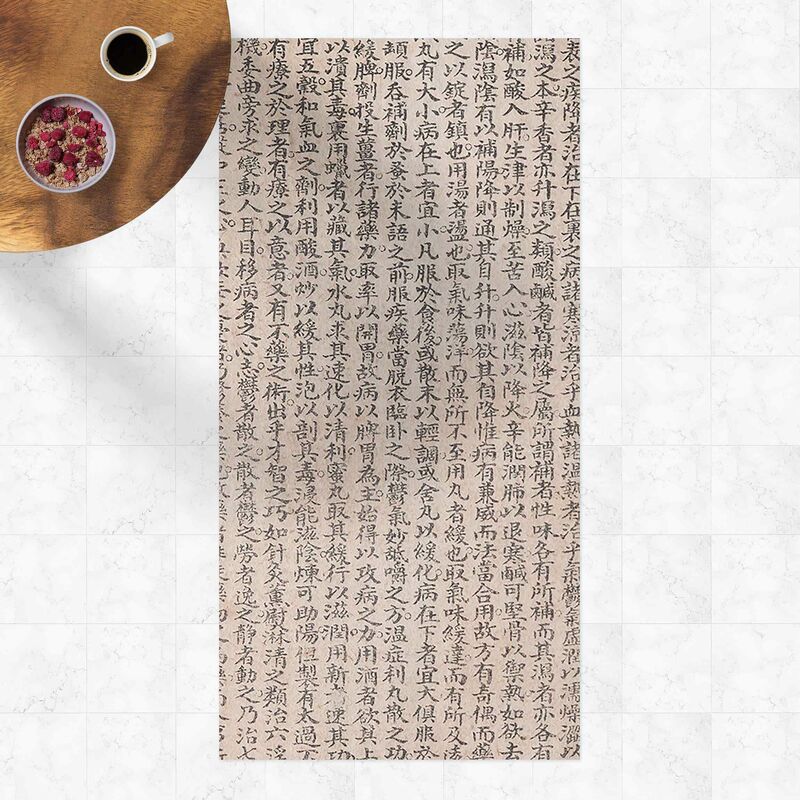 表之病降者治在下在裏之病諸寒涼者治乎血熱諸溫熱者治乎氣鬱氣虛潤以濡燥澁以
瀉之本辛香者亦升瀉之類酸鹹者皆補降之屬所謂補者性味各有所補而其瀉者亦各有
補如酸入肝生津以制燥至苦入心滋陰以降火辛能潤肺以退寒鹹可堅骨以禦熱如欲去
陰瀉陰有以補陽降則通其自升升則欲其自降惟病有兼感而法當合用故方有奇偶而藥
之以錠者鎮也用湯者盪也取氣味蕩洋而無所不至用丸者緩也取氣味緩達而有所及
丸有大小病在上者宜小凡服於食後或散末以輕調或含丸以緩化病在下者宜大俱服於
頡服吞補劑於蚤於未語之前服疾藥當脫衣臨臥之際鬱氣妙舐嚼之方溫症利丸散之功
緩脾劑投生薑者行諸藥力取率以開胃故病以脾胃為主始得以攻病之力用酒者欲其上
以潰其毒裹用蠟者以藏其氣水丸求其速化以清利蜜丸取其緩行以滋潤用新 速其功
宜五穀和氣血之劑利用酸酒炒以緩其性泡以剖其毒浸能滋陰煉可助陽但製有太過
有療之於理者有療之以意者又有不藥之術出乎才智之巧如針灸薰熨淋清之類治六淫
機委曲旁求之變動人耳目移病者之心志鬱者散之散者鬱之勞者逸之靜者動之乃治七